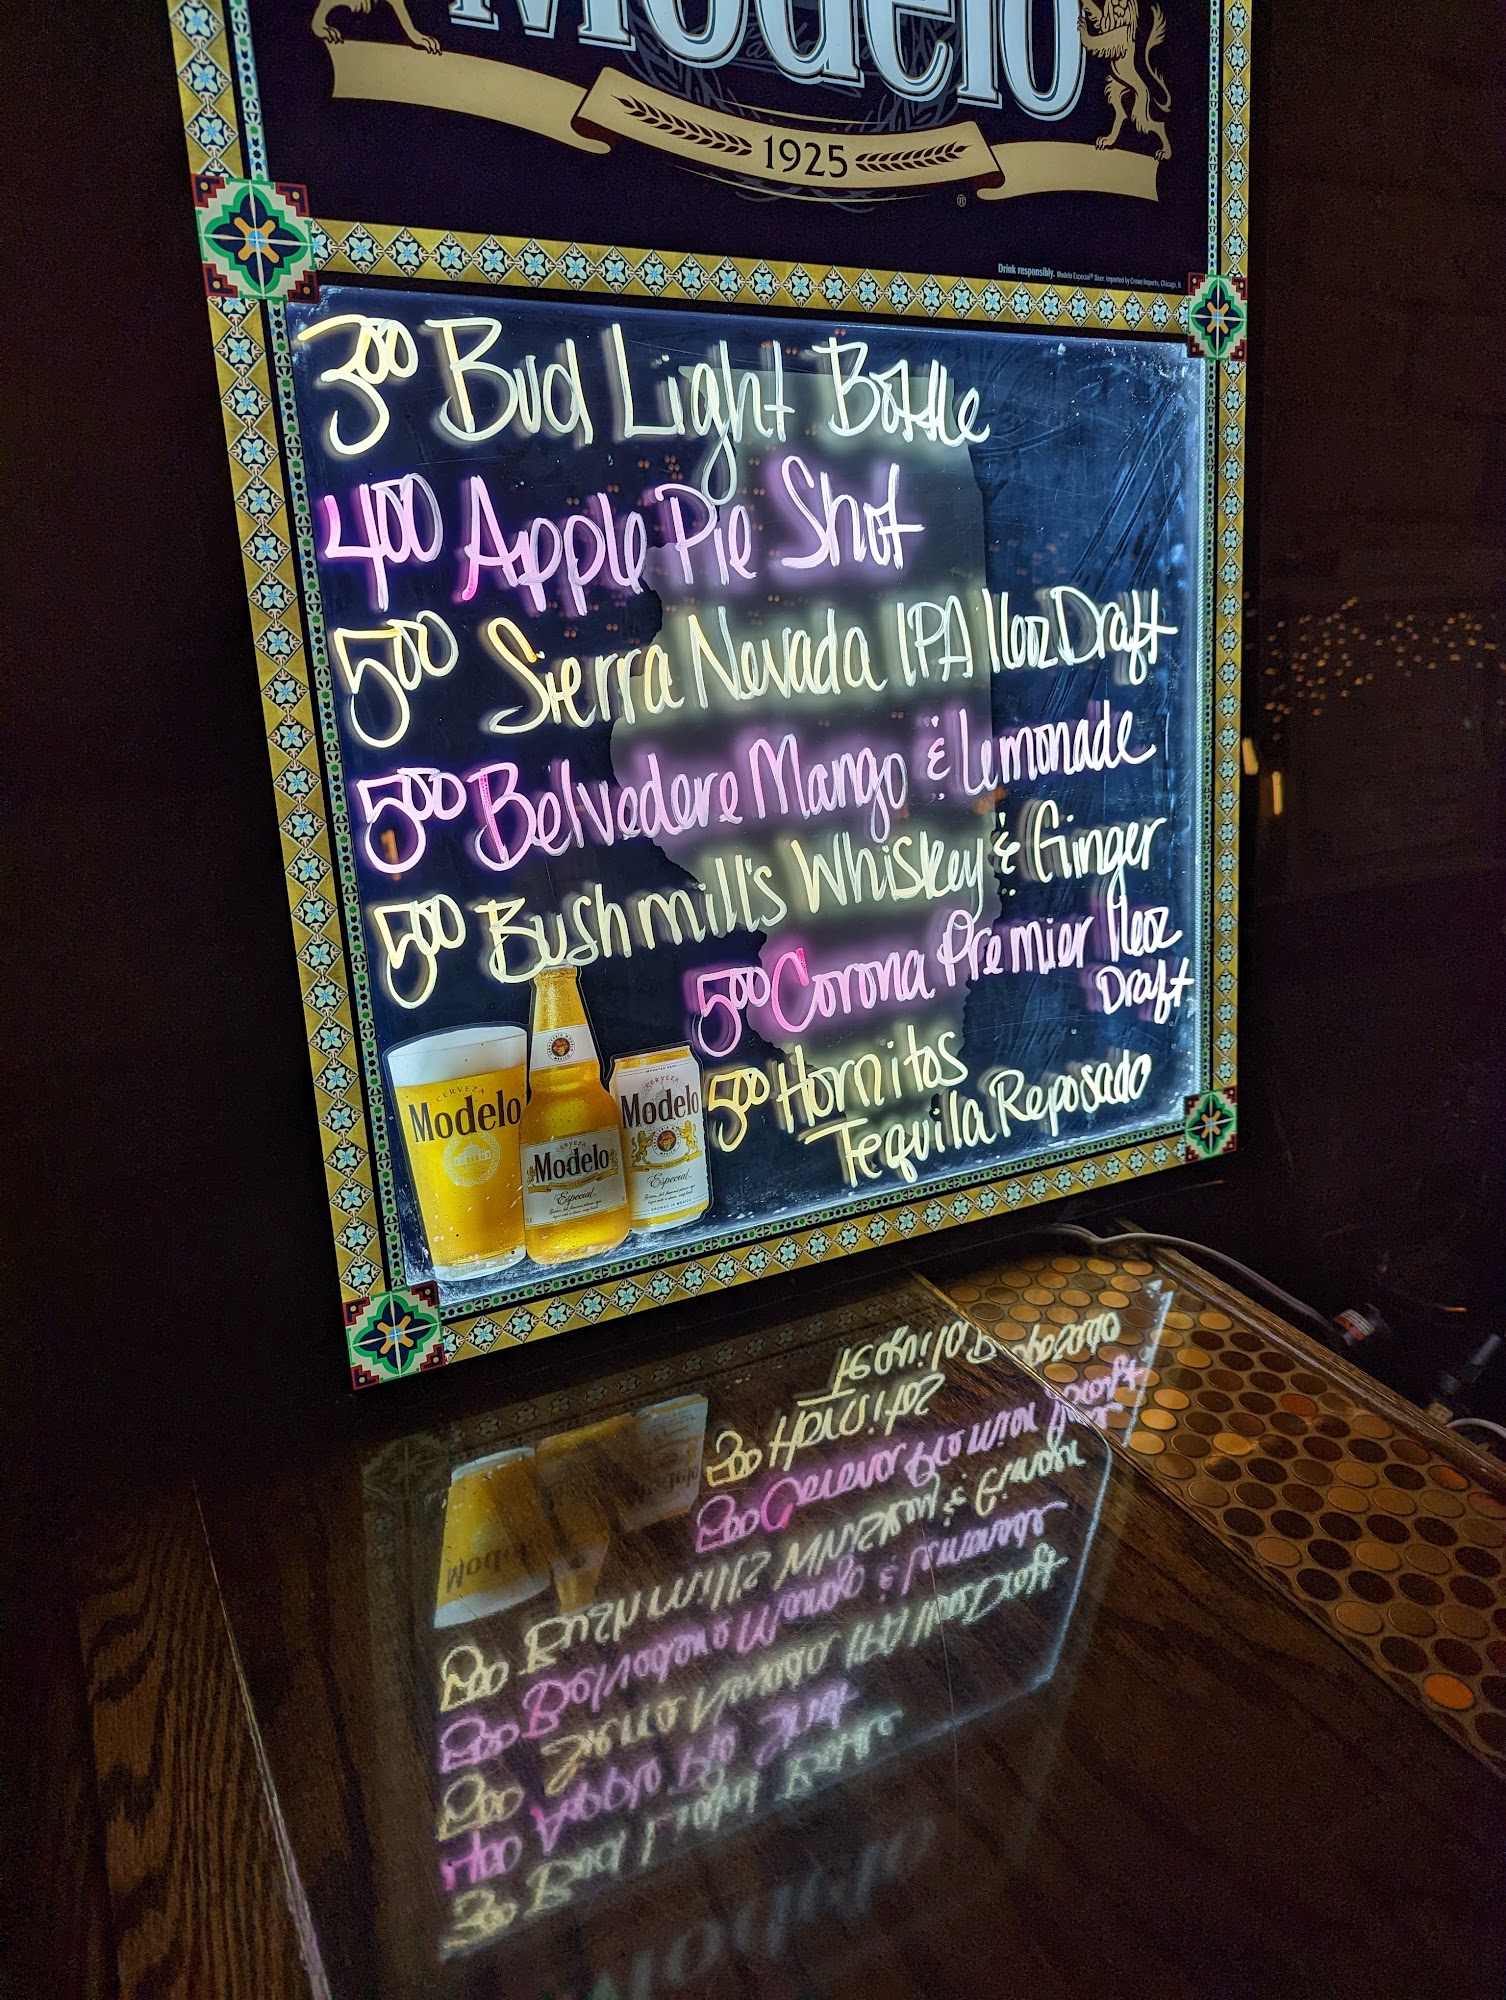 Modelo
1925
®
Drink responsibly. Modelo Especial® Beer. Imported by Crown Imports, Chicago, IL
300 Bud Light Bottle
400 Apple Pie Shot
500 Sierra Nevada IPA 16oz Draft
500 Belvedere Mango & Lemonade
500 Bushmill's Whiskey & Ginger
500 Corona Premier 16oz
Draft
500 Hornitos
Tequila Reposado
CERVEZA
Modelo
CERVEZA
Modelo
Especial
CERVEZA
Modelo
Especial